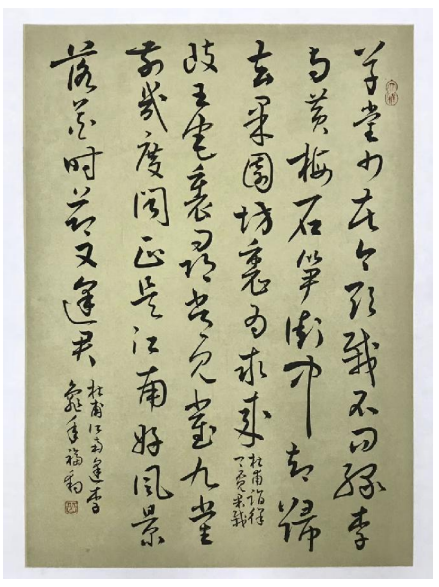 草堂少花今欲栽不问绿李
与黄梅石笋街中却归
去果园坊里为求来
杜甫诣徐
卿觅果栽
岐王宅里寻常见崔九堂
前几度闻正是江南好风景
落花时节又逢君
杜甫江南逢李
龟年福